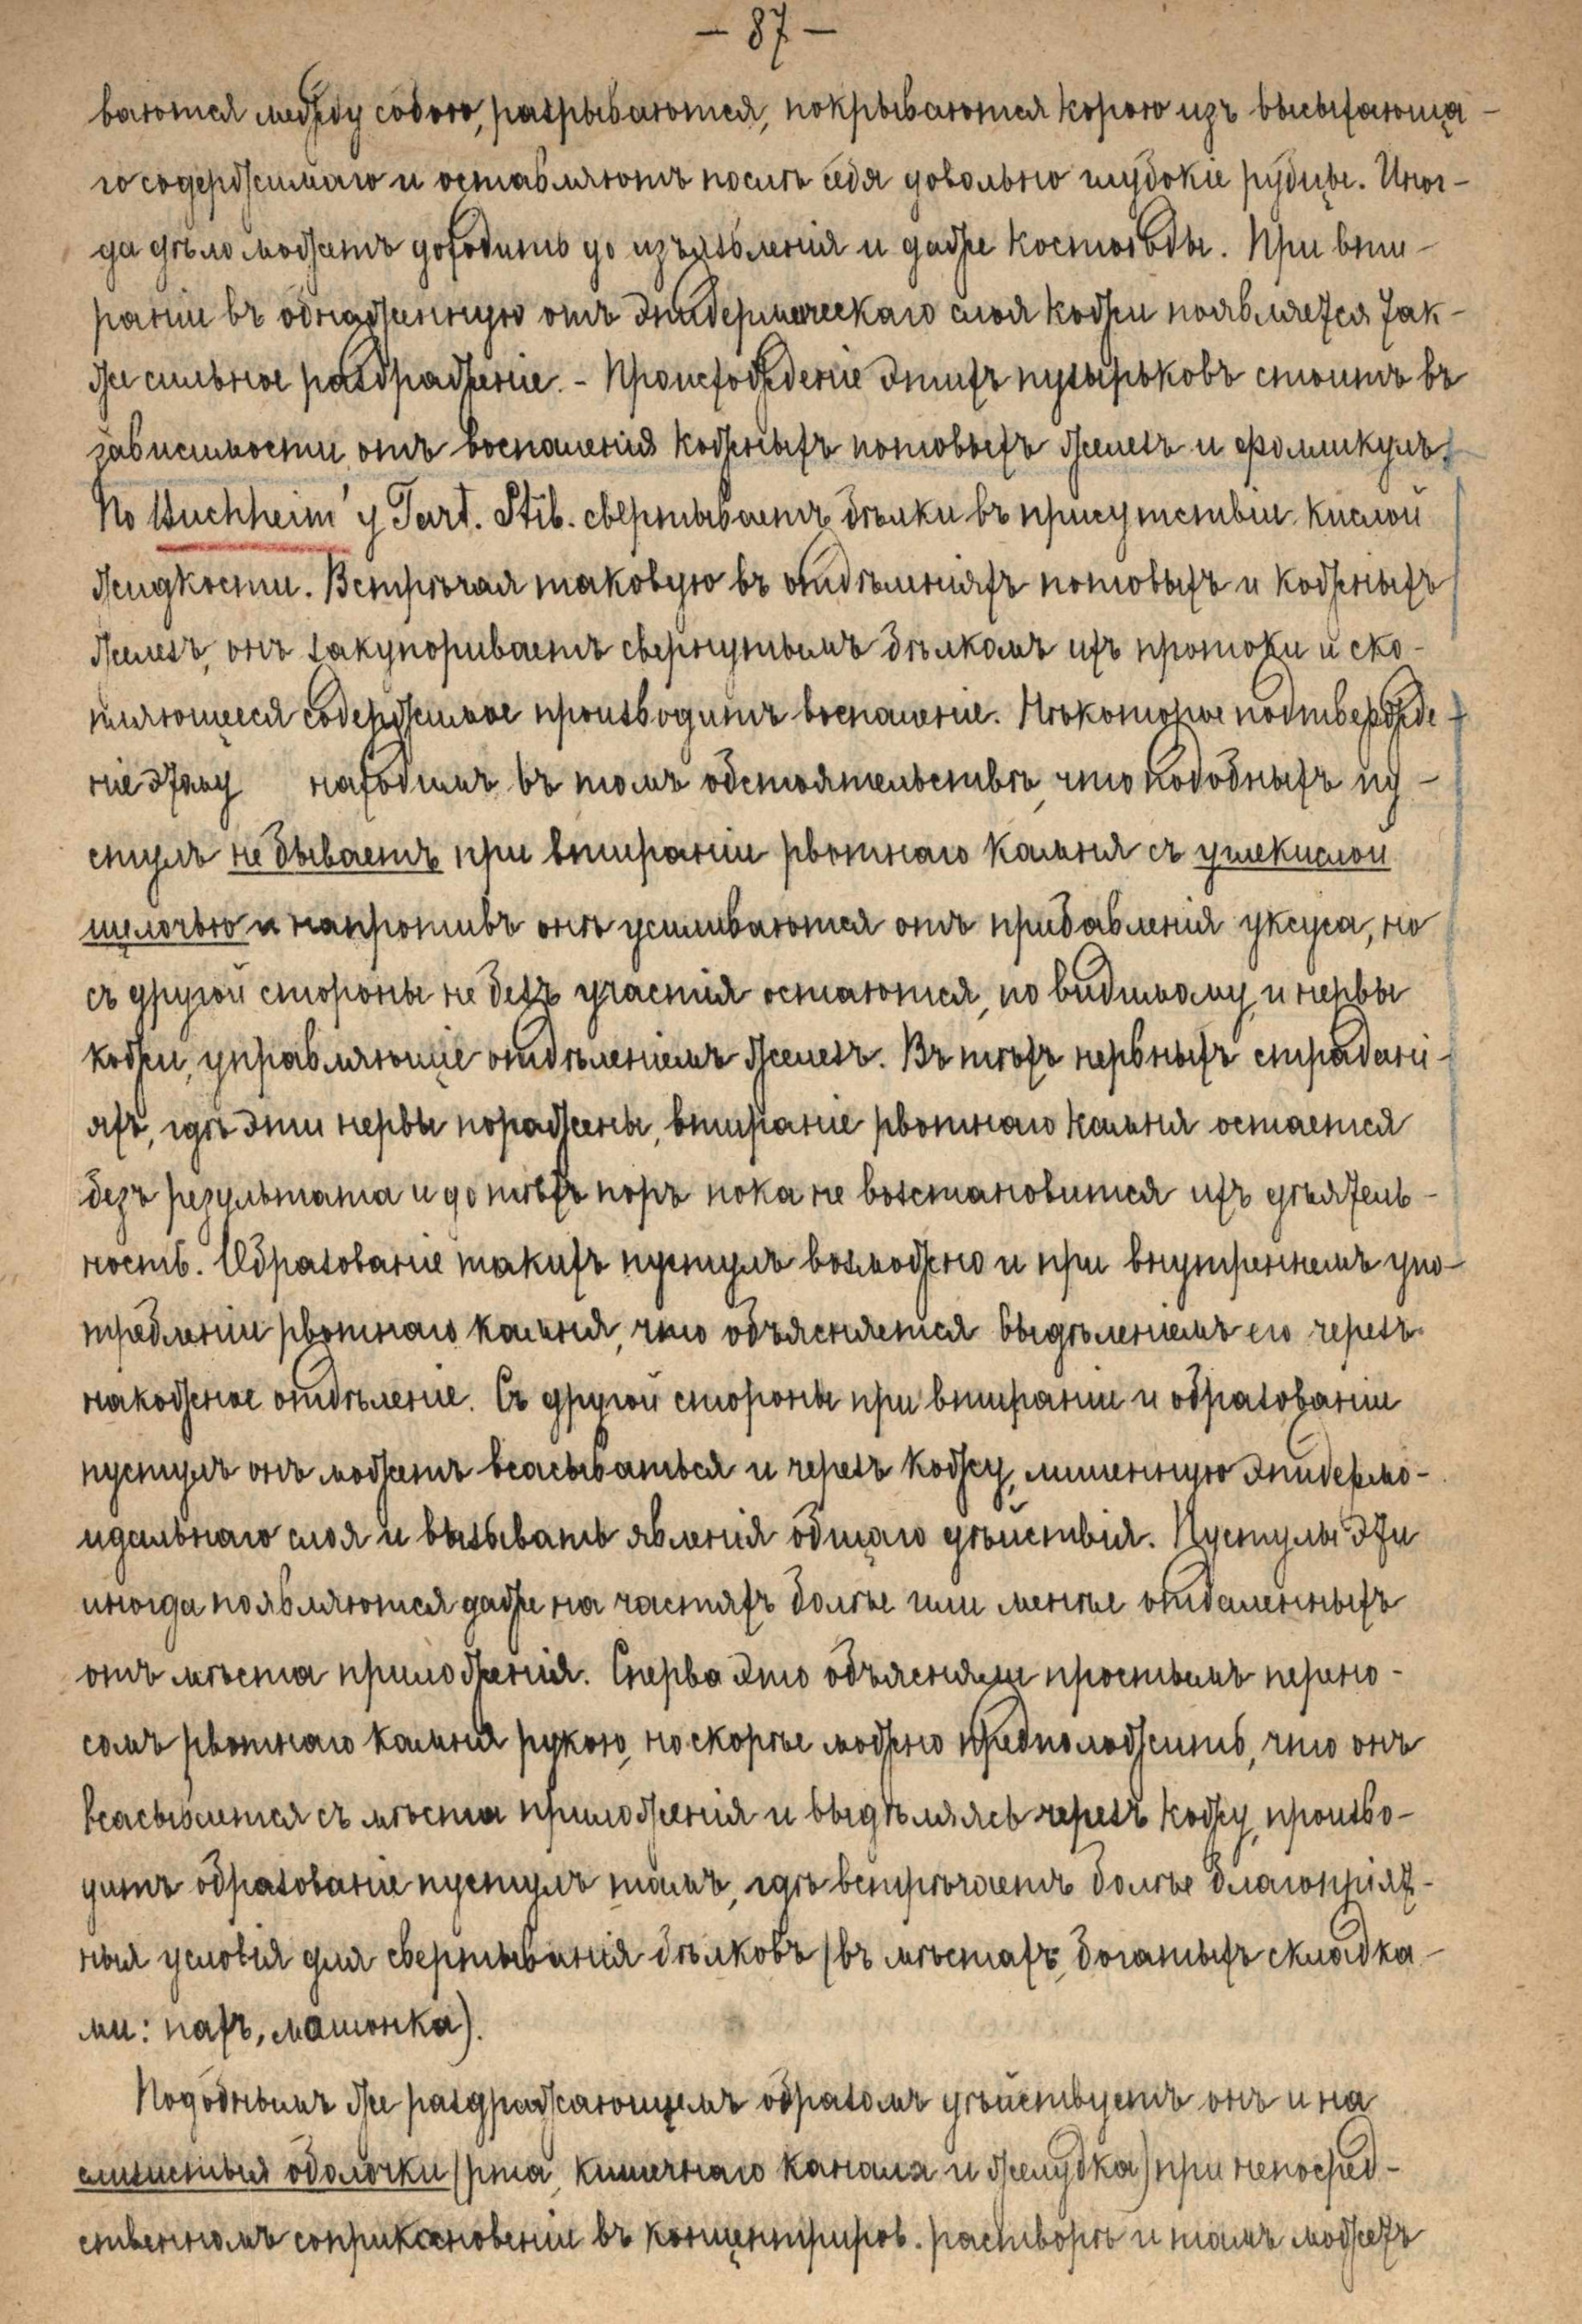 – 87 –
ваются между собою, разрываются, покрываются корою изъ высыхающа-
го содержимаго и оставляютъ послѣ себя довольно глубокіе рубцы. Иног-
да дѣло можетъ доходить до изъязвленія и даже костоѣды. При втир-
раніи въ обнаженную отъ эпидермическаго слоя кожи появляется так-
же сильное раздраженіе. – Происхожденіе этихъ пузырьковъ стоитъ въ
зависимости отъ воспаленія кожныхъ потовыхъ железъ и фолликулъ.
По Buchheim'у Tart. Stib. свертываетъ бѣлки въ присутствіи кислой
жидкости. Встрѣчая таковую въ отдѣленіяхъ потовыхъ и кожныхъ
железъ, онъ закупориваетъ свернутымъ бѣлкомъ ихъ протоки и ско-
пляющееся содержимое производитъ воспаленіе. Нѣкоторое подтвержде-
ніе этому находимъ въ томъ обстоятельствѣ, что подобныхъ пу-
стулъ не бываетъ при втираніи рвотнаго камня съ углекислой
щелочью и напротивъ онѣ усиливаются отъ прибавленія уксуса, но
съ другой стороны не безъ участія остаются, по видимому, и нервы
кожи, управляющіе отдѣленіемъ железъ. Въ тѣхъ нервныхъ страдані-
яхъ, гдѣ эти нервы поражены, втираніе рвотнаго камня остается
безъ результата и до тѣхъ поръ пока не возстановится ихъ дѣятель-
ность. Образованіе такихъ пустулъ возможно и при внутреннемъ упо-
требленіи рвотнаго камня, что объясняется выдѣленіемъ его черезъ
накожное отдѣленіе. Съ другой стороны при втираніи и образованіи
пустулъ онъ можетъ всасываться и черезъ кожу, лишенную эпидермо-
идальнаго слоя и вызывать явленія общаго дѣйствія. Пустулы эти
иногда появляются даже на частяхъ болѣе или менѣе отдаленныхъ
отъ мѣста приложенія. Сперва это объясняли простымъ перено-
сомъ рвотнаго камня рукою, но скорѣе можно предположить, что онъ
всасывается съ мѣста приложенія и выдѣляясь черезъ кожу, произво-
дитъ образованіе пустулъ тамъ, гдѣ встрѣчаетъ болѣе благопріят-
ныя условія для свертыванія бѣлковъ (въ мѣстахъ, богатыхъ складка-
ми: пахъ, мошонка).
Подобнымъ же раздражающемъ образомъ дѣйствуетъ онъ и на
слизистыя оболочки (рта, кишечнаго канала и желудка) при непосред-
ственномъ соприкосновеніи въ концентриров. растворѣ и тамъ можетъ